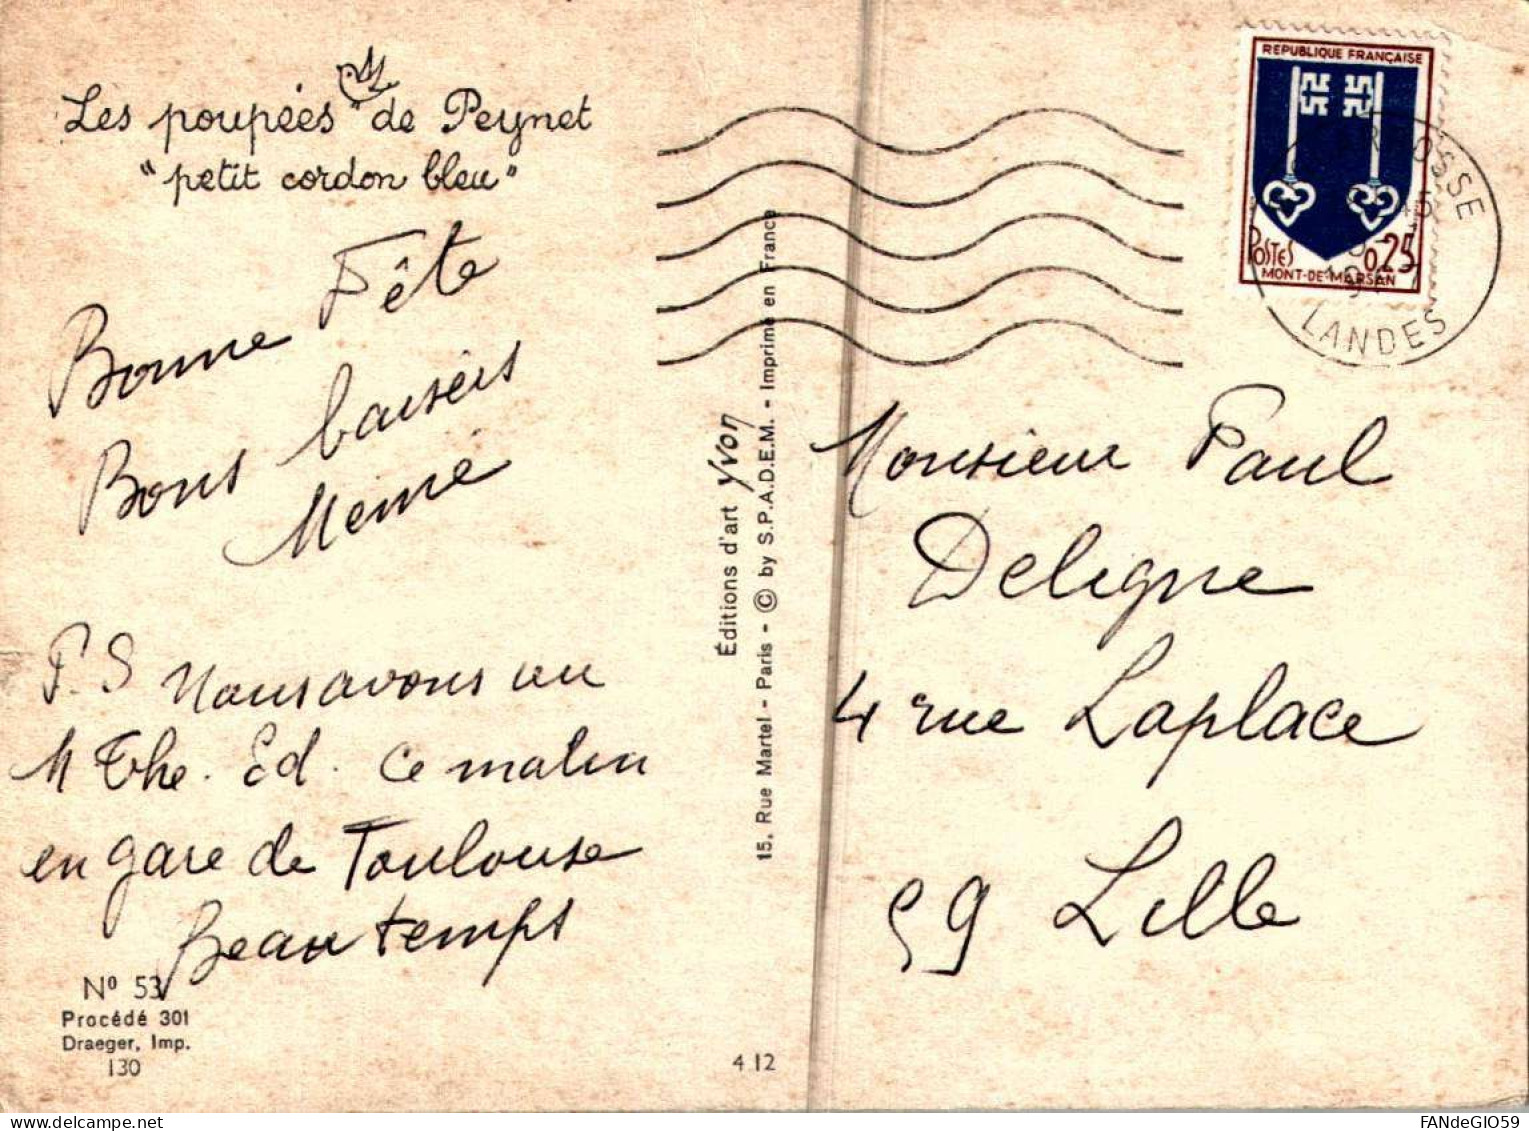 Les poupées de Peynet
"petit cordon bleu"
Bonne Fête
Bons baisers
Mémé
P.S Nous avons vu
M The. Ed. ce matin
en gare de Toulouse
Beau temps
Nº 53
Procédé 301
Draeger, Imp.
130
4 12
Éditions d'art Yvon
15, Rue Martel - Paris - © by S.P.A.D.E.M. - Imprimé en France
REPUBLIQUE FRANÇAISE
POSTES
0,25
MONT-DE-MARSAN
LANDES
Monsieur Paul
Deligne
4 rue Laplace
59 Lille
FANdeGIO59